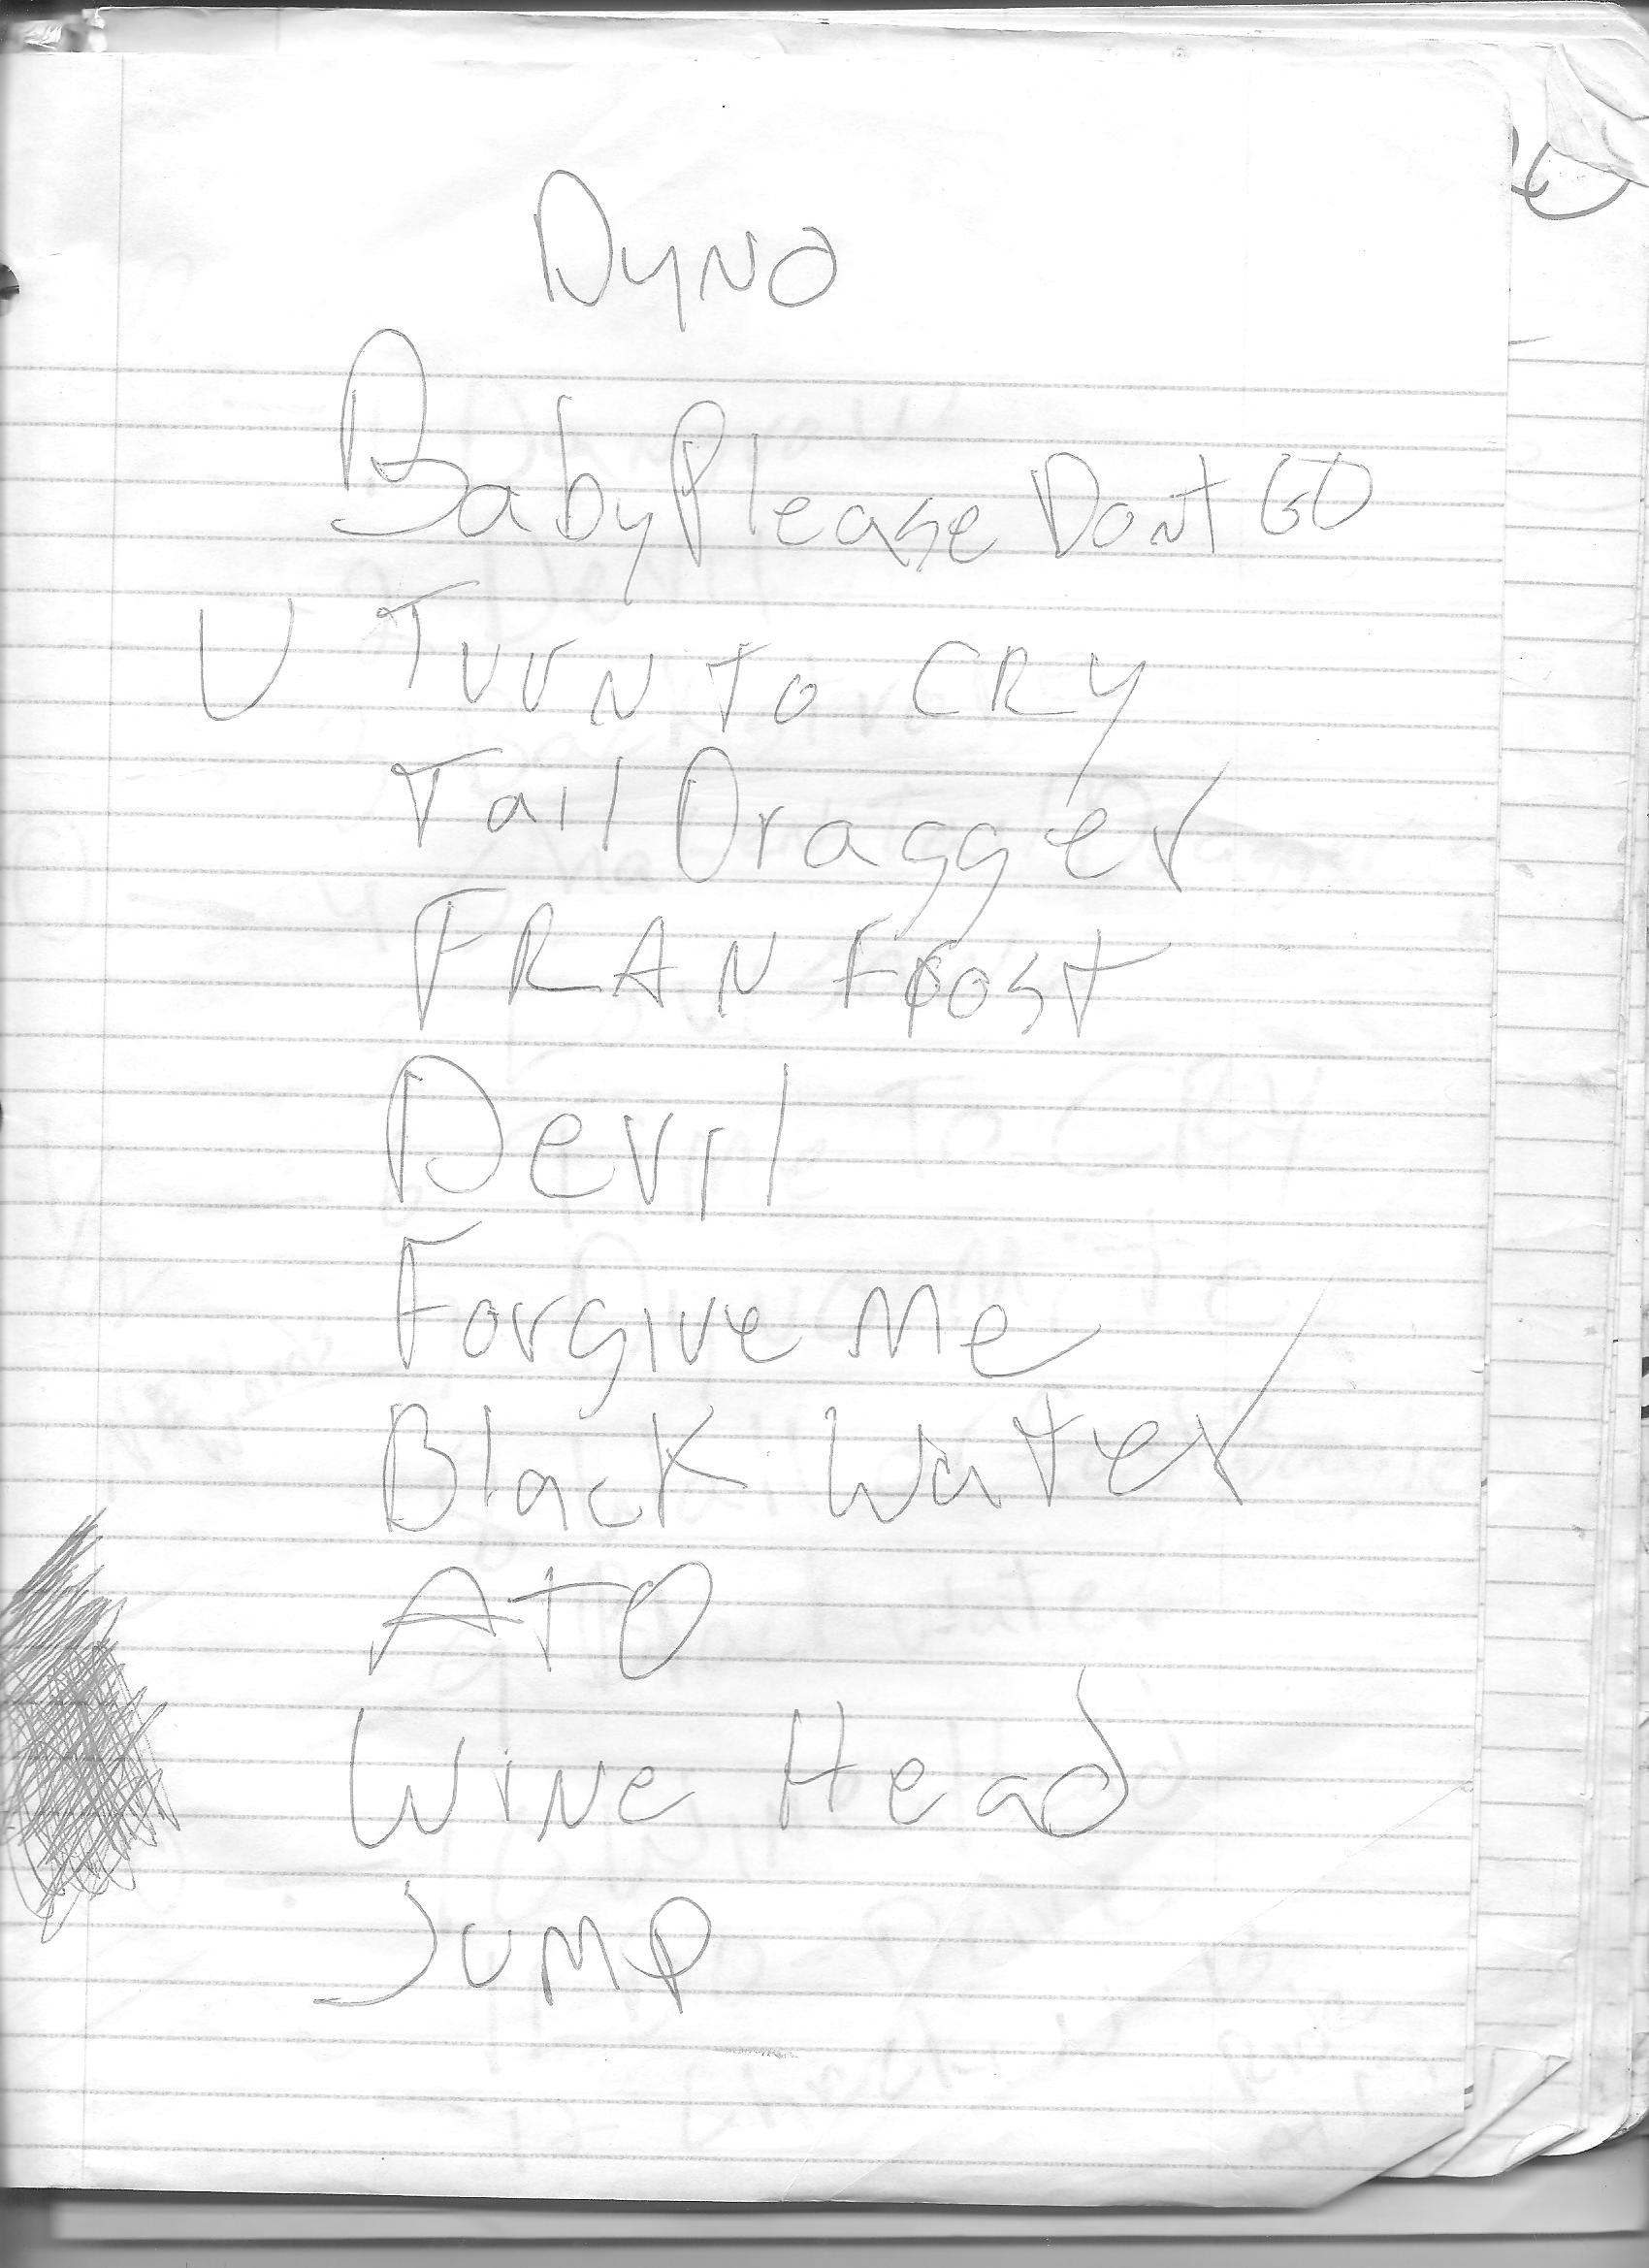 Dyno
Baby Please Dont GO
U Turn to CRY
Tail Dragger
FRAN Frost
Devil
Forgive Me
Black Water
ATO
Wine Head
Jump